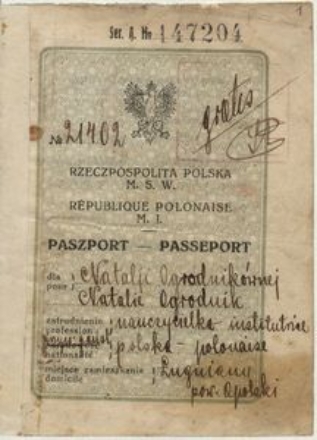 1
Ser. A. No 147204
No 21402
gratis
RZECZPOSPOLITA POLSKA
M. S. W.
RÉPUBLIQUE POLONAISE
M. I.
PASZPORT — PASSEPORT
dla Natalji Ogrodnikównej
pour Natalie Ogrodnik
zatrudnienie nauczycielka - institutrice
profession
polska - polonaise
nationalité
miejsce zamieszkania Lugniany
domicile pow. Opolski